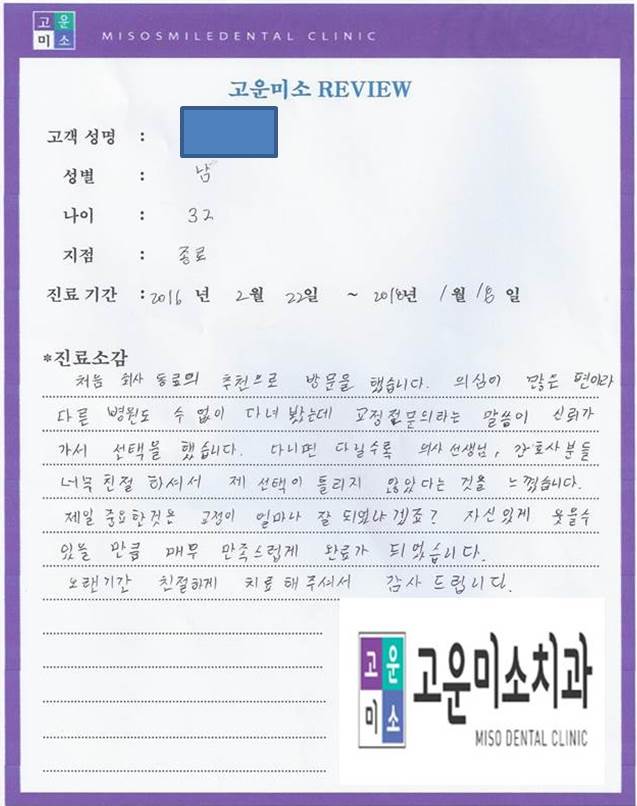 고운
미소
MISOSMILEDENTAL CLINIC
고운미소 REVIEW
고객 성명 :
성별 : 남
나이 : 32
지점 : 종로
진료 기간 : 2016 년 2월 22일 ~ 2018년 1월 18일
*진료소감
처음 회사 동료의 추천으로 방문을 했습니다. 의심이 많은 편이라
다른 병원도 수 없이 다녀 봤는데 교정전문의라는 말씀이 신뢰가
가서 선택을 했습니다. 다니면 다닐수록 의사 선생님, 간호사분들
너무 친절 하셔서 제 선택이 틀리지 않았다는 것을 느꼈습니다.
제일 중요한것은 교정이 얼마나 잘 되었냐 겠죠? 자신있게 웃을수
있을 만큼 매우 만족스럽게 완료가 되었습니다.
오랜기간 친절하게 치료해주셔서 감사 드립니다.
고운
미소
고운미소치과
MISO DENTAL CLINIC